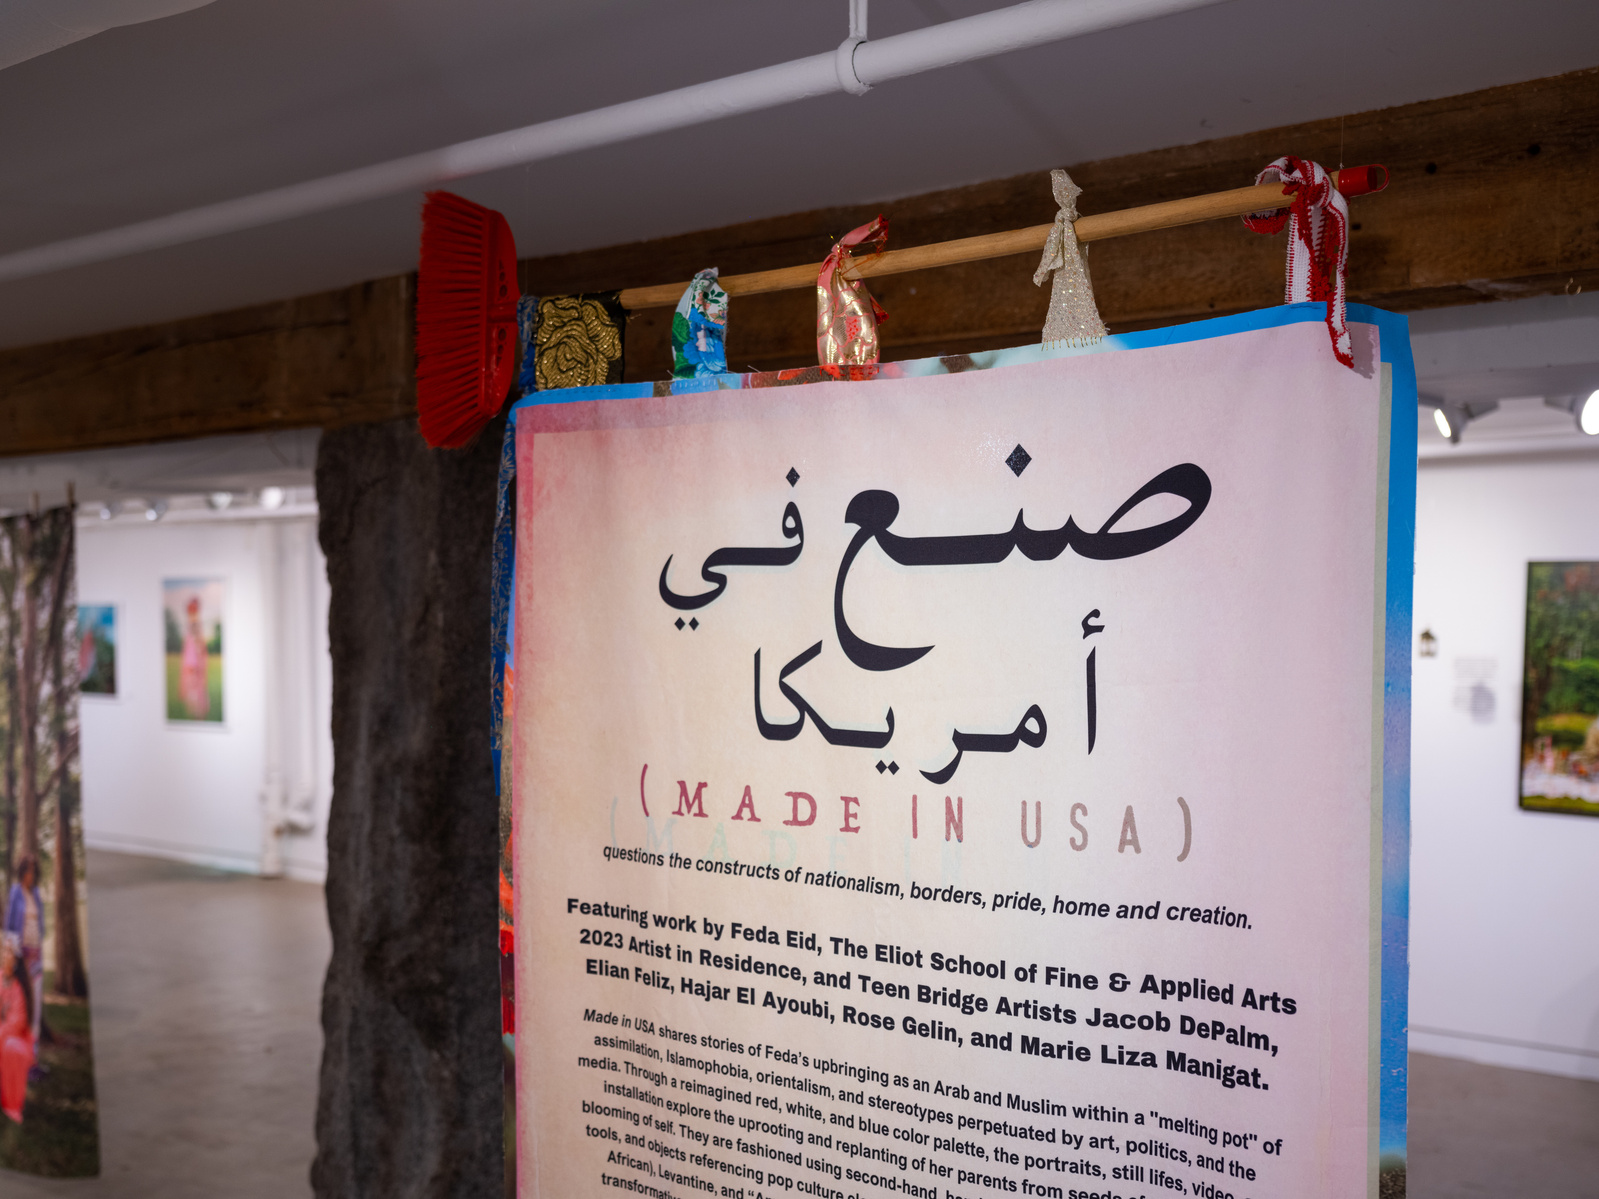 صنع في
أمريكا
(MADE IN USA)
questions the constructs of nationalism, borders, pride, home and creation.
Featuring work by Feda Eid, The Eliot School of Fine & Applied Arts
2023 Artist in Residence, and Teen Bridge Artists Jacob DePalm,
Elian Feliz, Hajar El Ayoubi, Rose Gelin, and Marie Liza Manigat.
Made in USA shares stories of Feda's upbringing as an Arab and Muslim within a "melting pot" of
assimilation, Islamophobia, orientalism, and stereotypes perpetuated by art, politics, and the
media. Through a reimagined red, white, and blue color palette, the portraits, still lifes, video,
installation explore the uprooting and replanting of her parents from seeds
blooming of self. They are fashioned using second-hand,
tools, and objects referencing pop culture
African), Levantine, and